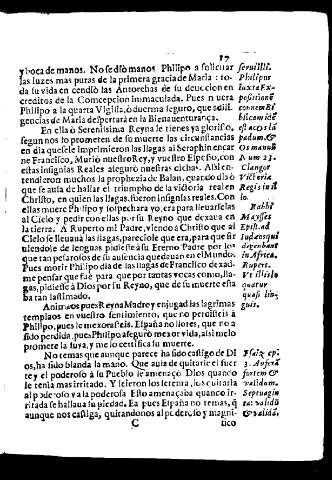 17
y boca de manos. No se diò manos Philipo a solicitar
las luzes mas puras de la primera gracia de Maria: to-
da su vida en cendiò las Antorchas de su deuccion en
creditos de la Comcepcion inmaculada. Pues n uera
Philipo a la quarta Vigilia, ò duerma seguro, que à dili-
gencias de Maria despertarà en la Bienauenturança.
En ella ò Serenissima Reyna le tienes ya glorioso,
segun nos lo prometen de su muerte las circunstancias
en dia que se le imprimieron las llagas al Seraphin encar
ne Francisco, Muriò nuestro Rey, y vuestro Esposo, con
estas insignias Reales aseguró nuestras dichas. Asi en-
tendieron muchos la prophecia de Balan, quando dixo
que se auia de hallar el triumpho de la victoria real en
Christo, en quien las llagas, fueron insignias reales. Con
ellas muere Philipo y sospechara yo, era para lleuarselas
al Cielo y pedir con ellas por su Reyno que dexaua en
la tierra. A Ruperto mi Padre, viendo à Christo que al
Cielo se lleuaua las llagas, pareciole que era, para que sir
uiendole de lenguas pidiesse à su Eterno Padre por los
que tan pesarosos de su ausencia quedauan en el Mundo.
Pues morir Philipo dia de las llagas de Francisco dexad-
me pensar que fuè para que por tantas vocas como, lla-
gas, pidiesse à Dios por su Reyno, que de su muerte esta
ba tan lastimado.
Animaos pues Reyna Madre y enjugad las lagrimas
templaos en vuestro sentimiento, que no perdisteis à
Philipo, pues le mexorasteis. España no llores, que no a
sido perdida, pues Philipo aseguró mexor vida, asi me lo
promete la suya, y me lo certifica su muerte.
No temas que aunque parece ha sido castigo de Di
os, ha sido blanda la mano. Que auia de quitarle el fuer
te y el poderoso à su Pueblo le amenaçò Dios quando
le tenia mas irritado. Y leieron los setenta, les quitaria
al poderoso y a la poderosa Esto amenaçaba quando ir-
ritada se hallaua su piedad. Ea pues España no temas, q̃
aunque nos castiga, quitandonos al poderoso y magni-
C
fico
Philipus
iuxta Ex-
positionẽ
est ac oris lã
padum. &
Os manuũ
Num 23.
Clangor
Victoria
Regis in il
lo.
Rabbi
Moyses
Epist. ad
Iudæos qui
degebant
in Africa.
Rupert.
Vt illis lo
quatur
quasi lin-
guis.
Isaiæ cp.
3. Auferã
fortem &
validum.
Septuagin
ta: validũ
& validã.